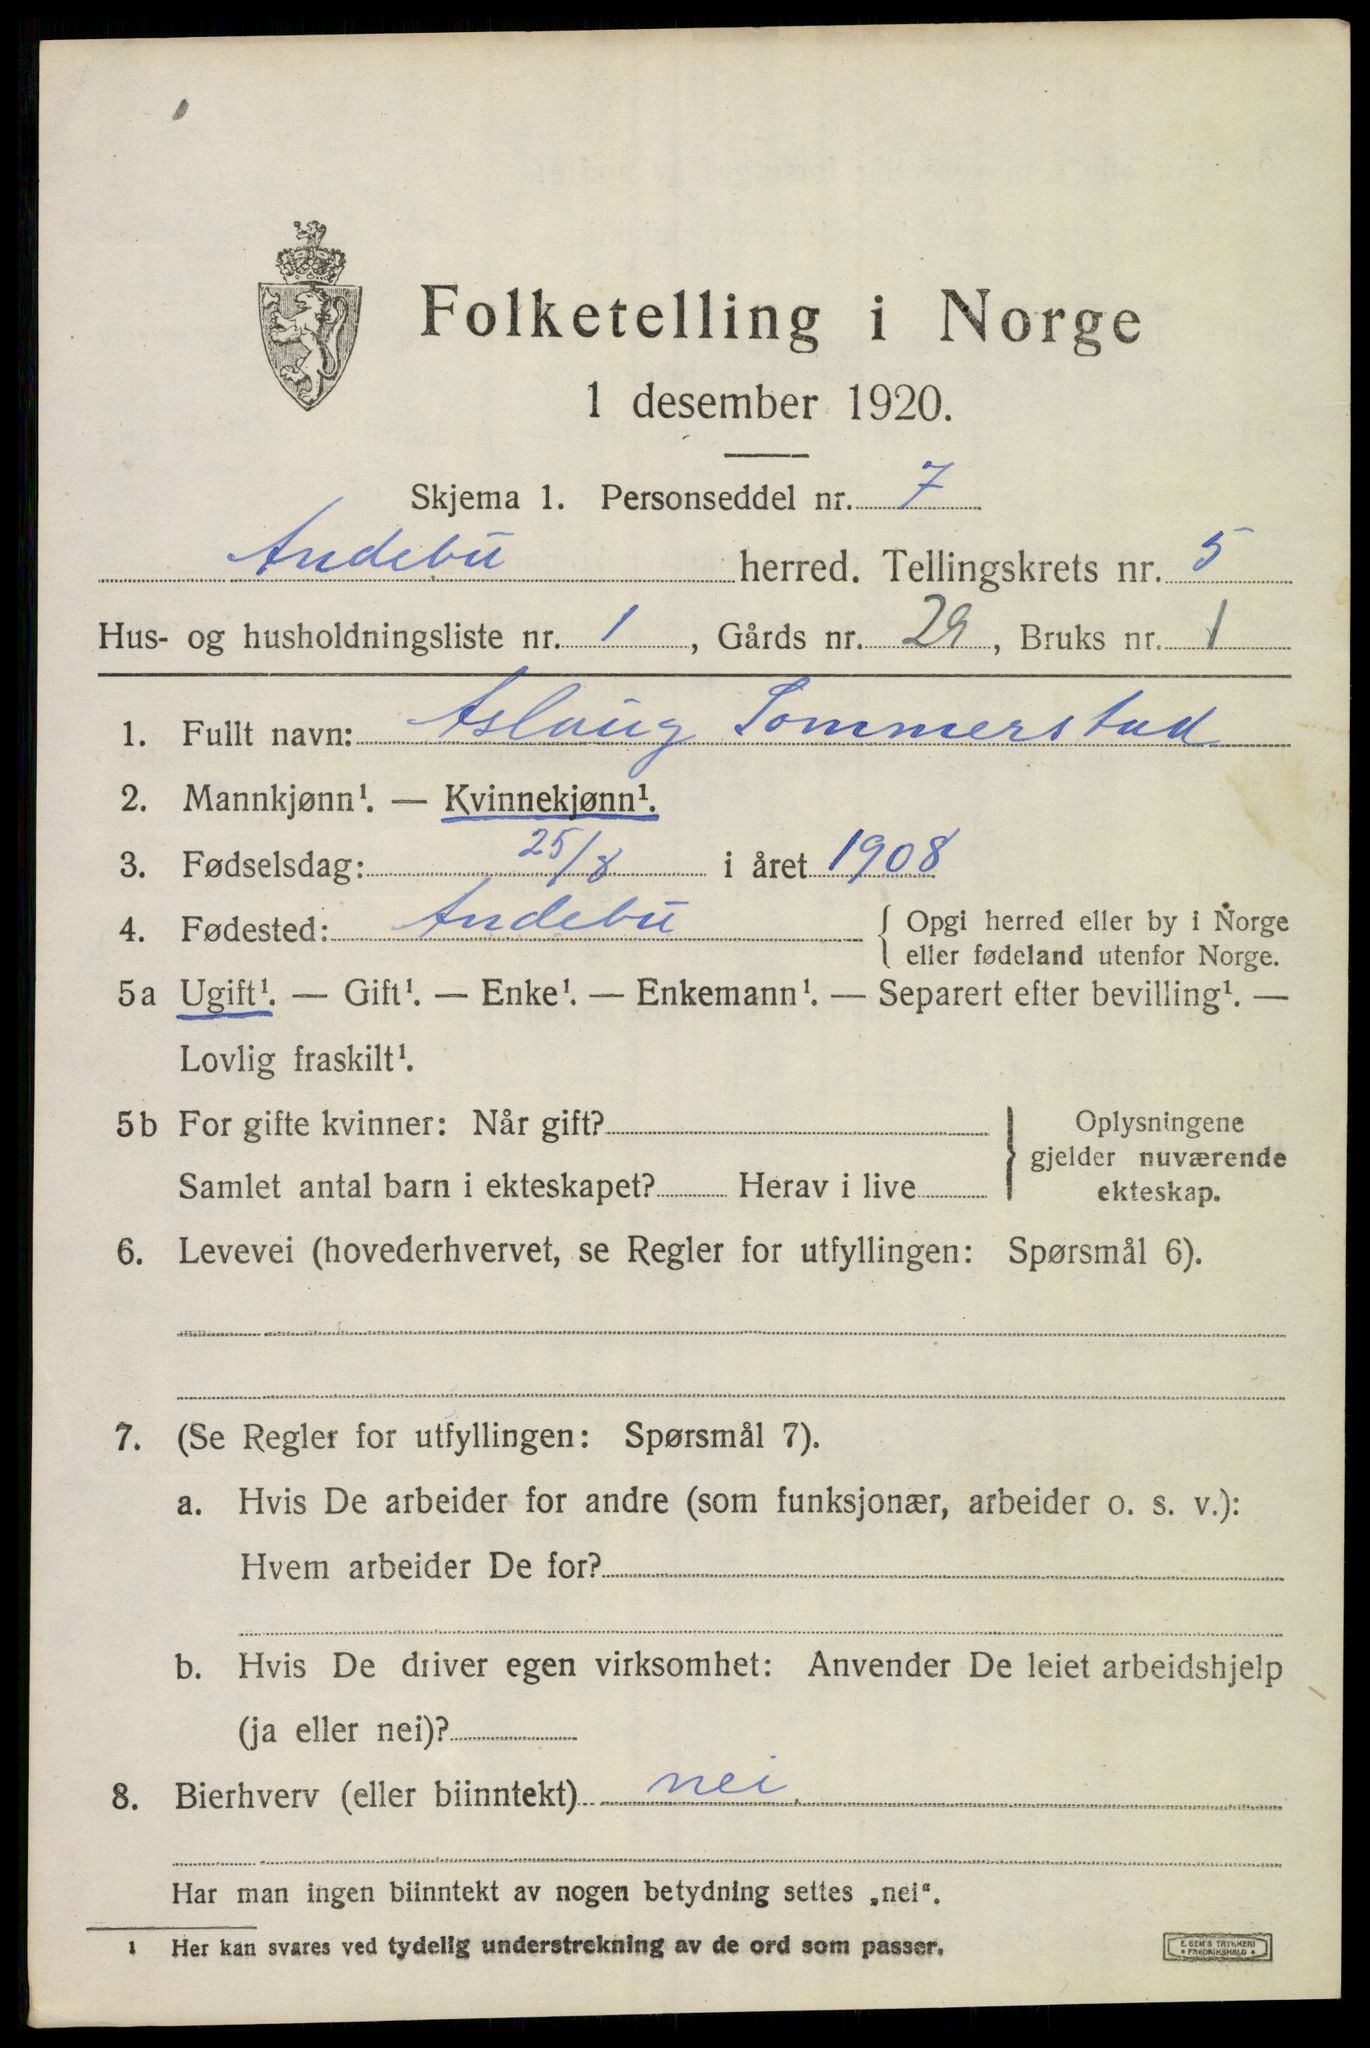 Folketelling i Norge
1 desember 1920.
Skjema 1. Personseddel nr. 7
Andebu herred. Tellingskrets nr. 5
Hus- og husholdningsliste nr. 1, Gårds nr. 29, Bruks nr. 1
1. Fullt navn: Aslaug Sommerstad
2. Mannkjønn¹. — Kvinnekjønn¹.
3. Fødselsdag: 25/8 i året 1908
4. Fødested: Andebu { Opgi herred eller by i Norge
eller fødeland utenfor Norge.
5a Ugift¹. — Gift¹. — Enke¹. — Enkemann¹. — Separert efter bevilling¹. —
Lovlig fraskilt¹.
5b For gifte kvinner: Når gift? } Oplysningene
gjelder nuværende
Samlet antal barn i ekteskapet? Herav i live ekteskap.
6. Levevei (hovederhvervet, se Regler for utfyllingen: Spørsmål 6).
7. (Se Regler for utfyllingen: Spørsmål 7).
a. Hvis De arbeider for andre (som funksjonær, arbeider o. s. v.):
Hvem arbeider De for?
b. Hvis De driver egen virksomhet: Anvender De leiet arbeidshjelp
(ja eller nei)?
8. Bierhverv (eller biinntekt) nei.
Har man ingen biinntekt av nogen betydning settes „nei“.
1 Her kan svares ved tydelig understrekning av de ord som passer.
E. SEM'S TRYKKERI
• FREDRIKSHALD •